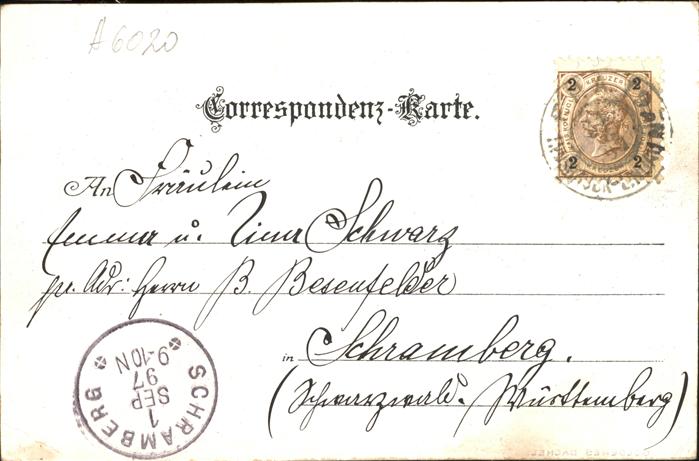 A6020
Correspondenz-Karte.
2 KREUZER 2
2 2
An Fräulein
Emma u. Tina Schwarz
pr. Adr: Herrn B. Besenfelder
in Schramberg.
(Schwarzwald. Württemberg)
SCHRAMBERG
1
SEP
97
9-10N